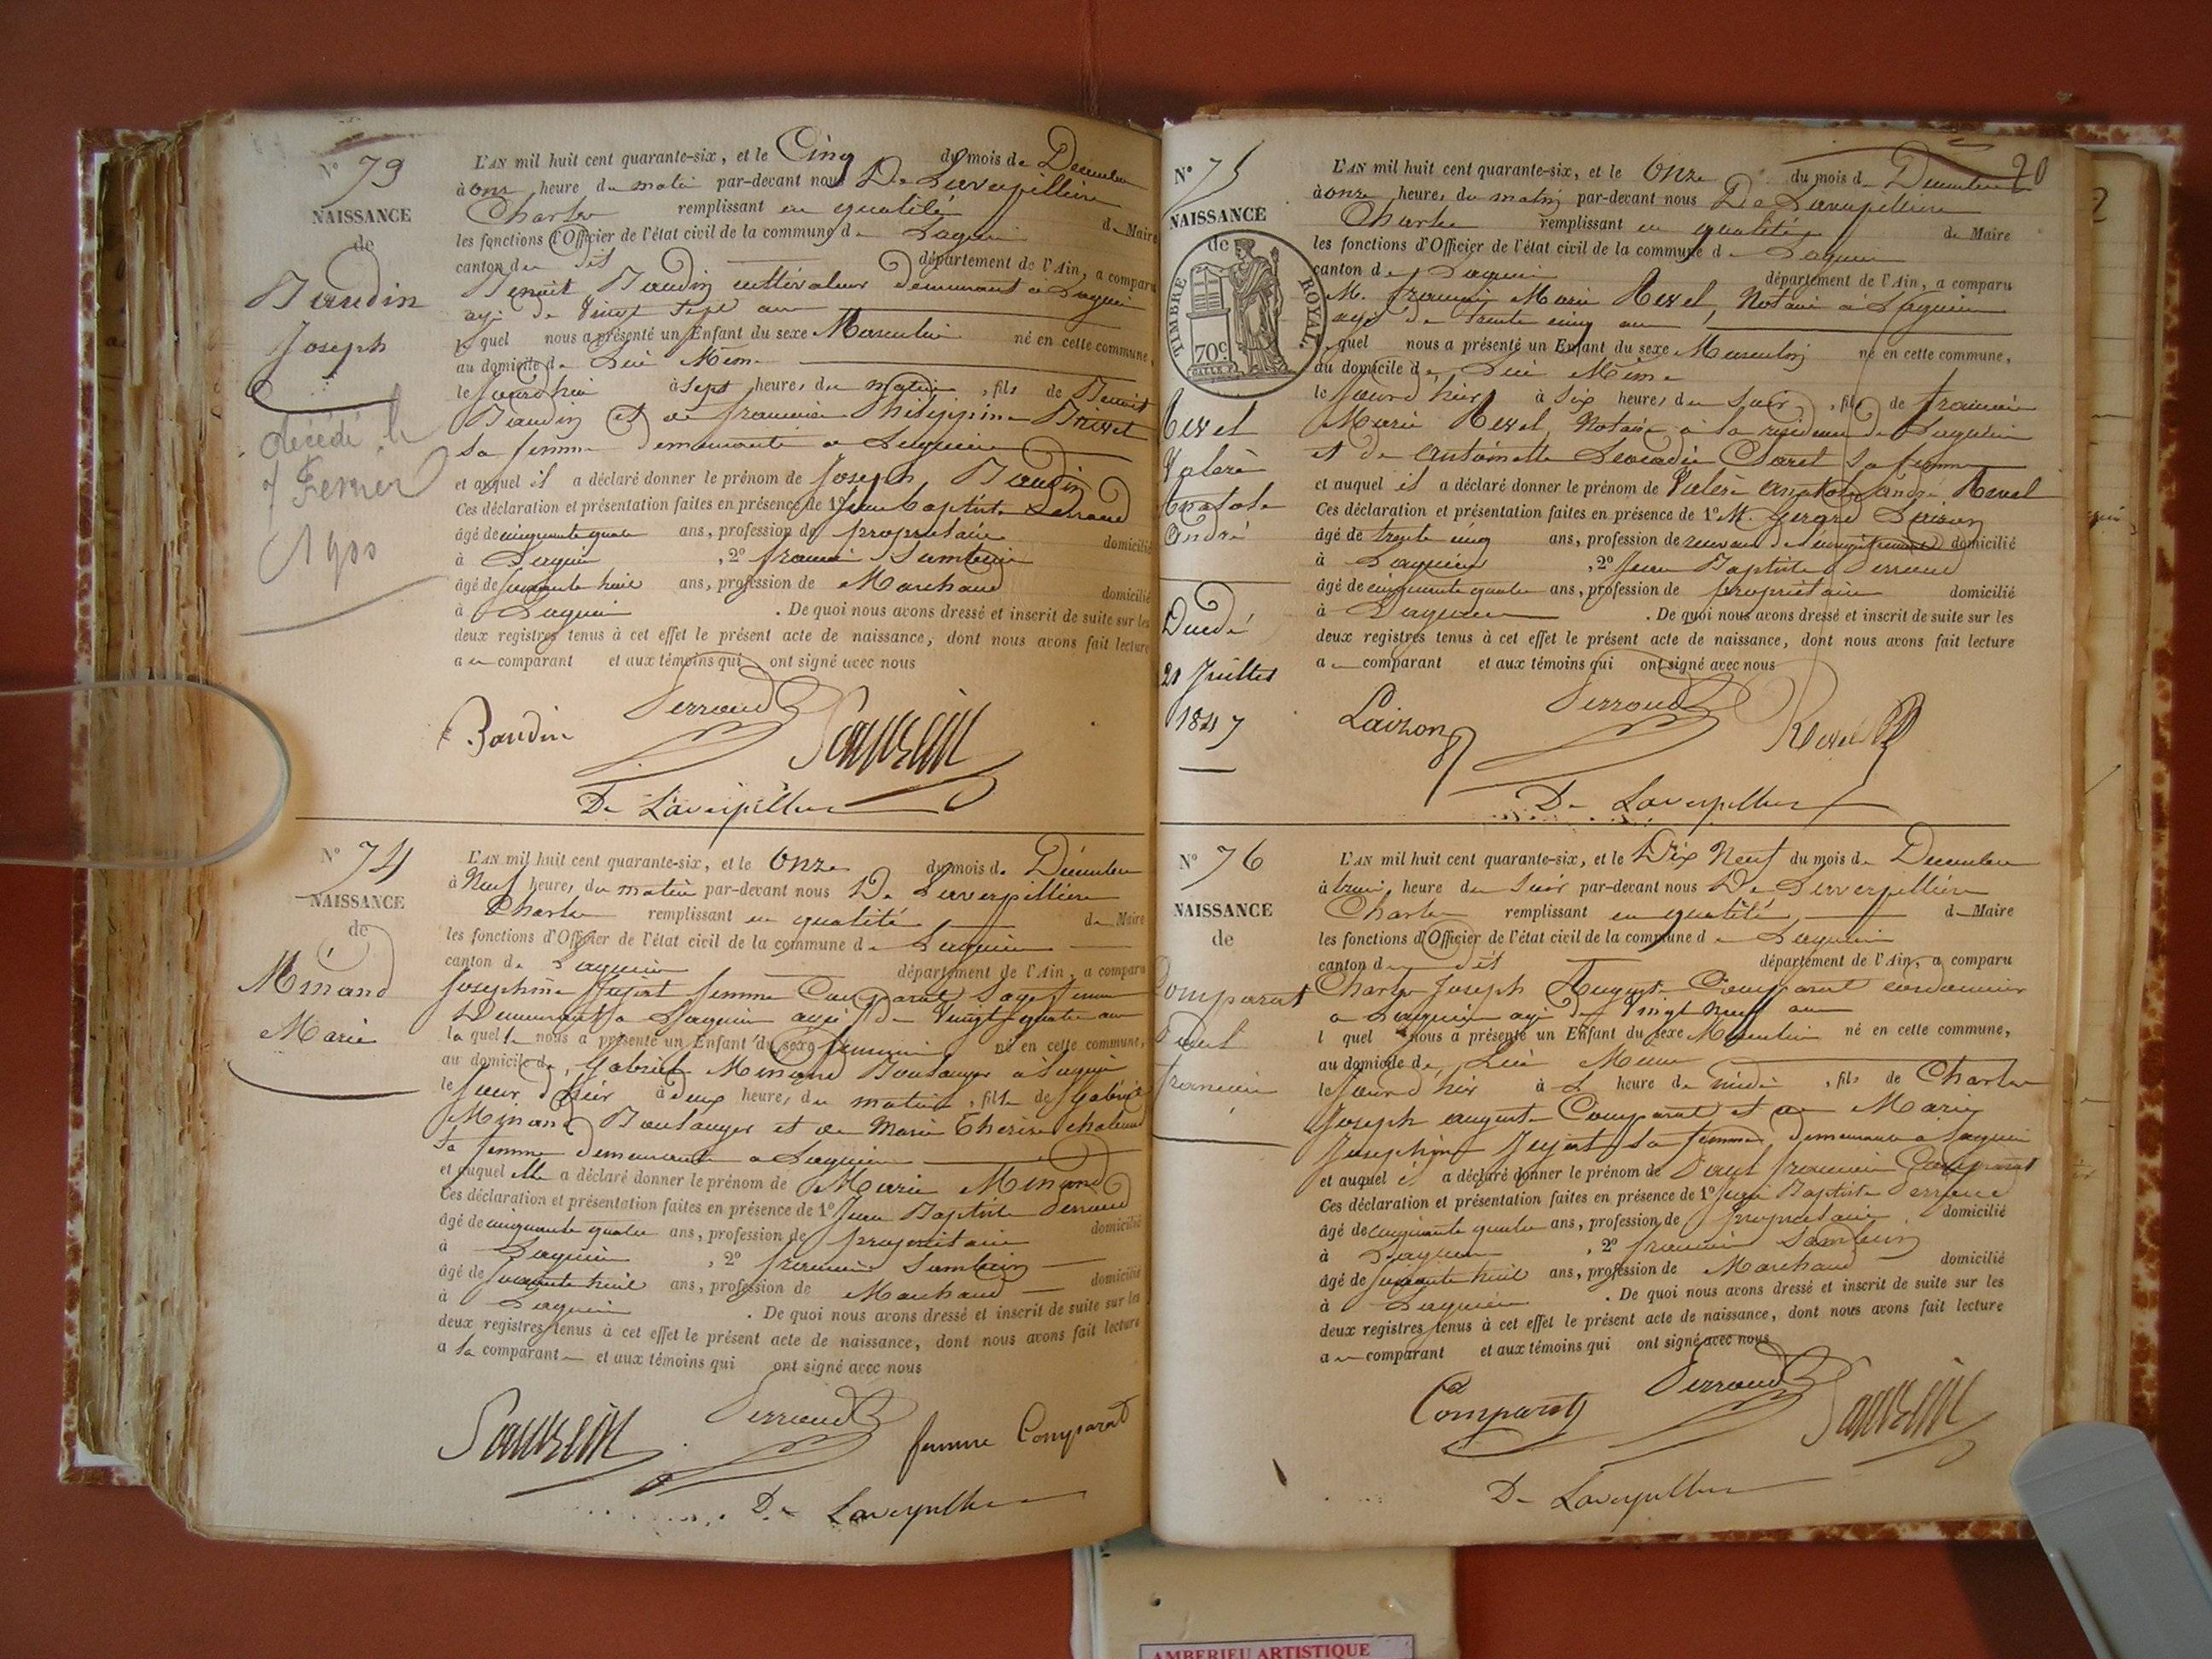 N° 73
NAISSANCE
de
Baudin
Joseph
décédé le
7 Fevrier
1900
L'AN mil huit cent quarante-six, et le Cinq du mois de Décembre
à onze heure du matin par-devant nous De Laverpillière
Charles remplissant en qualité de Maire
les fonctions d'Officier de l'état civil de la commune de Lagnieu
canton du dit département de l'Ain, a comparu
Benoit Baudin cultivateur demeurant à Lagnieu
agé de Vingt Sept ans
lequel nous a présenté un Enfant du sexe Masculin né en cette commune,
au domicile de Lui Même
le jourd'hui à sept heures du matin, fils de Benoit
Baudin et de françoise philippine
sa femme demeurants à Lagnieu
et auquel il a déclaré donner le prénom de Joseph Baudin
Ces déclaration et présentation faites en présence de 1° Jean baptiste Perraud
âgé de cinquante quatre ans, profession de propriétaire domicilié
à Lagnieu, 2° françois
âgé de soixante huit ans, profession de Marchand domicilié
à Lagnieu. De quoi nous avons dressé et inscrit de suite sur les
deux registres tenus à cet effet le présent acte de naissance, dont nous avons fait lecture
au comparant et aux témoins qui ont signé avec nous
Baudin Perraud
De Laverpillière
N° 74
NAISSANCE
de
Minand
Marie
L'AN mil huit cent quarante-six, et le Onze du mois de Décembre
à Neuf heures du matin par-devant nous De Laverpillière
Charles remplissant en qualité de Maire
les fonctions d'Officier de l'état civil de la commune de Lagnieu
canton de Lagnieu département de l'Ain, a comparu
Josephine Jujat femme Comparat Sage femme
Demeurant à Lagnieu agée de Vingt quatre ans
laquelle nous a présenté un Enfant du sexe féminin né en cette commune,
au domicile de Gabriel Minand Boulanger à Lagnieu
le jour d'hier à deux heures du matin, fille de Gabriel
Minand Boulanger et de Marie Thérèse
sa femme demeurants à Lagnieu
et auquel elle a déclaré donner le prénom de Marie Minand
Ces déclaration et présentation faites en présence de 1° Jean Baptiste Perraud
âgé de cinquante quatre ans, profession de propriétaire domicilié
à Lagnieu, 2° françois
âgé de soixante huit ans, profession de Marchand domicilié
à Lagnieu. De quoi nous avons dressé et inscrit de suite sur les
deux registres tenus à cet effet le présent acte de naissance, dont nous avons fait lecture
a la comparante et aux témoins qui ont signé avec nous
Perraud femme Comparat
De Laverpillière
20
N° 75
NAISSANCE
de
TIMBRE ROYAL.
70c
Revel
Valère
Anatole
André
Décédé
21 Juillet
1847
L'AN mil huit cent quarante-six, et le Onze du mois de Décembre
à onze heures du matin par-devant nous De Laverpillière
Charles remplissant en qualité de Maire
les fonctions d'Officier de l'état civil de la commune de Lagnieu
canton de Lagnieu département de l'Ain, a comparu
M. françois Marie Revel, Notaire à Lagnieu
agé de trente cinq ans
lequel nous a présenté un Enfant du sexe Masculin né en cette commune,
au domicile de Lui Même
le jour d'hier à Six heures du Soir, fils de françois
Marie Revel, Notaire à la résidence de Lagnieu
et de antoinette Léocadie Claret sa femme
et auquel il a déclaré donner le prénom de Valère anatole andré Revel
Ces déclaration et présentation faites en présence de 1° M. Laizon
âgé de trente cinq ans, profession de receveur de domicilié
à Lagnieu, 2° Jean Baptiste Perraud
âgé de cinquante quatre ans, profession de propriétaire domicilié
à Lagnieu. De quoi nous avons dressé et inscrit de suite sur les
deux registres tenus à cet effet le présent acte de naissance, dont nous avons fait lecture
au comparant et aux témoins qui ont signé avec nous
Laizon Perraud Revel
De Laverpillière
N° 76
NAISSANCE
de
Comparat
Paul
François
L'AN mil huit cent quarante-six, et le Dix Neuf du mois de Décembre
à trois heure du Soir par-devant nous De Laverpillière
Charles remplissant en qualité de Maire
les fonctions d'Officier de l'état civil de la commune de Lagnieu
canton du dit département de l'Ain, a comparu
Charles Joseph August Comparat cordonnier
à Lagnieu agé de Vingt Neuf ans
lquel nous a présenté un Enfant du sexe Masculin né en cette commune,
au domicile de Lui Même
le jour d'hier à heure de midi, fils de Charles
Joseph august Comparat et de Marie
Josephine Jujat sa femme, demeurants à Lagnieu
et auquel il a déclaré donner le prénom de Paul françois Comparat
Ces déclaration et présentation faites en présence de 1° Jean Baptiste Perraud
âgé de cinquante quatre ans, profession de propriétaire domicilié
à Lagnieu, 2° françois
âgé de soixante huit ans, profession de Marchand domicilié
à Lagnieu. De quoi nous avons dressé et inscrit de suite sur les
deux registres tenus à cet effet le présent acte de naissance, dont nous avons fait lecture
au comparant et aux témoins qui ont signé avec nous
Comparat Perraud
De Laverpillière
AMBERIEU ARTISTIQUE